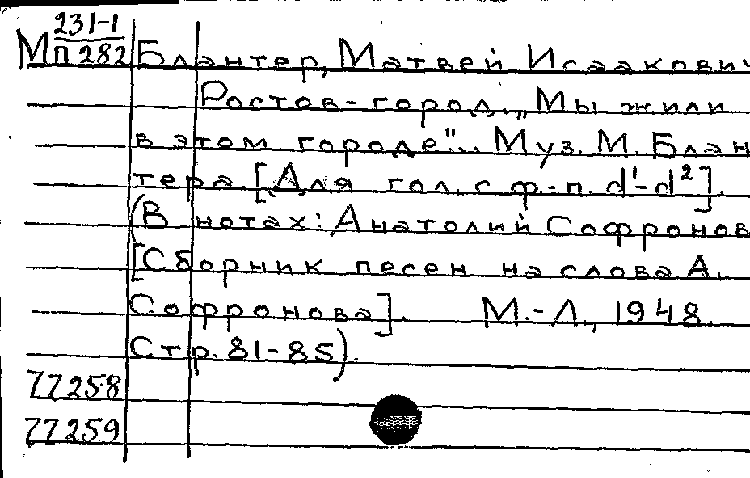 231-1
М П 282 Блантер, Матвей Исаакович
Ростов-город. „Мы жили
в этом городе"... Муз. М. Блан-
тера [Для гол. с ф-п. d¹-d²].
(В нотах: Анатолий Софронов
[Сборник песен на слова А.
Софронова]. М.-Л., 1948.
Стр. 81-85).
77258
77259